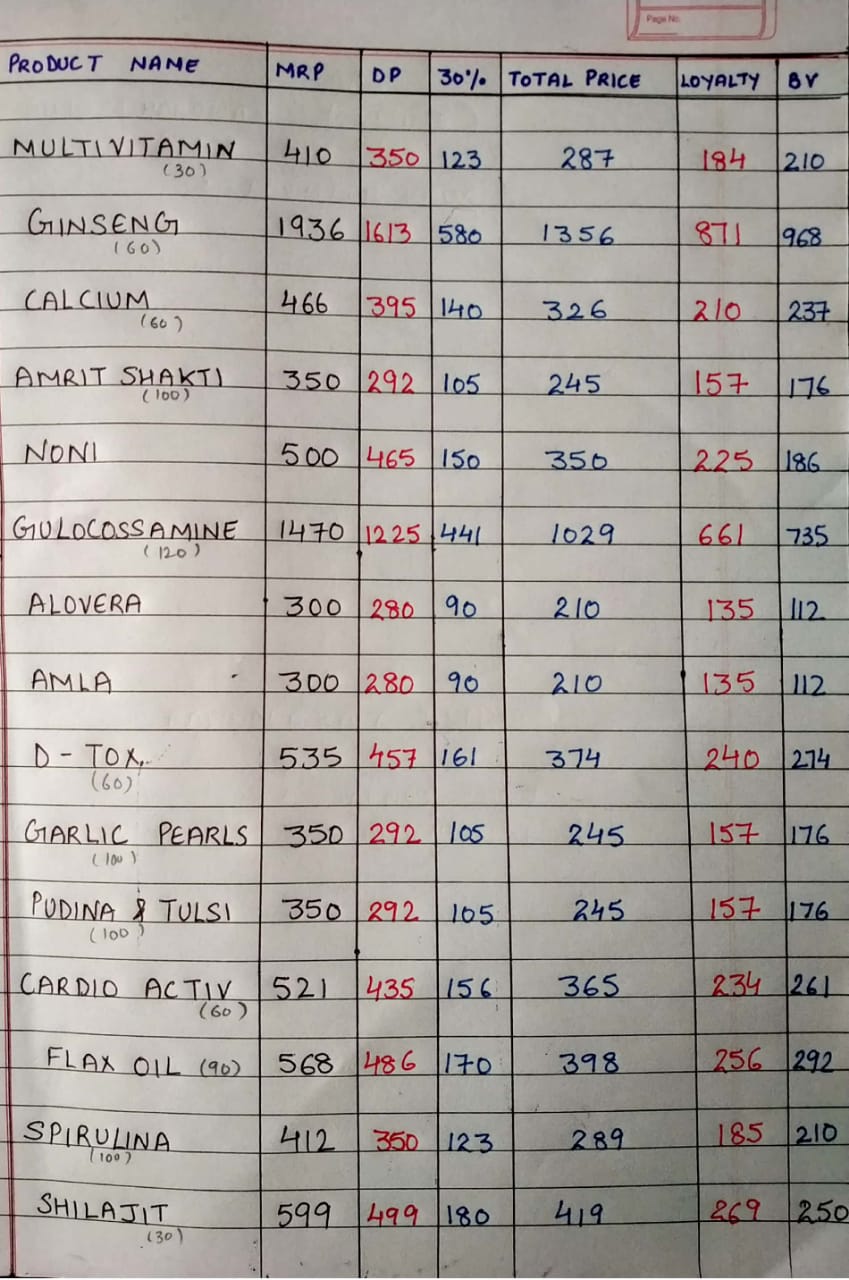 Page No.
PRODUCT NAME MRP DP 30% TOTAL PRICE LOYALTY BV
MULTIVITAMIN 410 350 123 287 184 210
(30)
GINSENG 1936 1613 580 1356 871 968
(60)
CALCIUM 466 395 140 326 210 237
(60)
AMRIT SHAKTI 350 292 105 245 157 176
(100)
NONI 500 465 150 350 225 186
GULOCOSSAMINE 1470 1225 441 1029 661 735
(120)
ALOVERA 300 280 90 210 135 112
AMLA 300 280 90 210 135 112
D-TOX 535 457 161 374 240 274
(60)
GARLIC PEARLS 350 292 105 245 157 176
(100)
PUDINA & TULSI 350 292 105 245 157 176
(100)
CARDIO ACTIV 521 435 156 365 234 261
(60)
FLAX OIL (90) 568 486 170 398 256 292
SPIRULINA 412 350 123 289 185 210
(100)
SHILAJIT 599 499 180 419 269 250
(30)